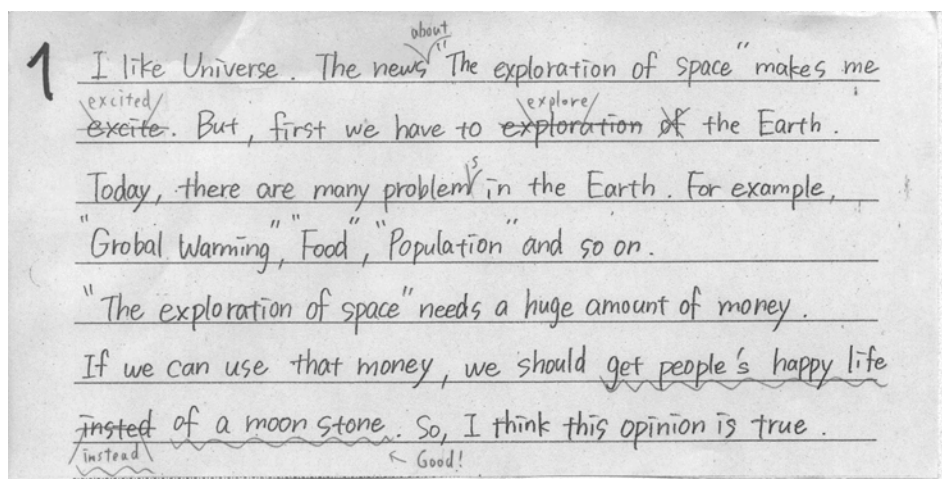 1
about
I like Universe. The news "The exploration of space" makes me
excited explore
excite. But, first we have to exploration of the Earth.
s
Today, there are many problem in the Earth. For example,
"Grobal Warming", "Food", "Population" and so on.
"The exploration of space" needs a huge amount of money.
If we can use that money, we should get people's happy life
insted of a moon stone. So, I think this opinion is true.
instead ← Good!